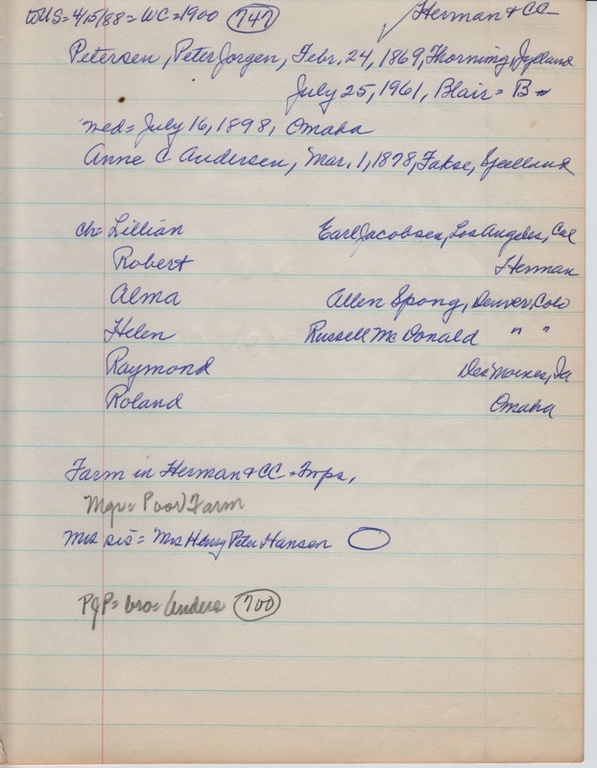 toUS=4/15/88=WC=1900 (747) Herman+CC
Petersen, Peter Jorgen, Febr. 24, 1869, Thorning, Jyelland
July 25, 1961, Blair= B
Med= July 16, 1898, Omaha
Anne C Andersen, Mar. 1, 1878, Fakse, Sjaelland
ch= Lillian Earl Jacobsen, Los Angeles, Cal
Robert Herman
Alma Allen Spong, Denver, Colo
Helen Russell McDonald " "
Raymond Des Moines, Ia
Roland Omaha
Farm in Herman+CC=Twps.
Mgr= Poor Farm
Mrs sis= Mrs Henry Peter Hansen
PJP= bro= Anders (700)